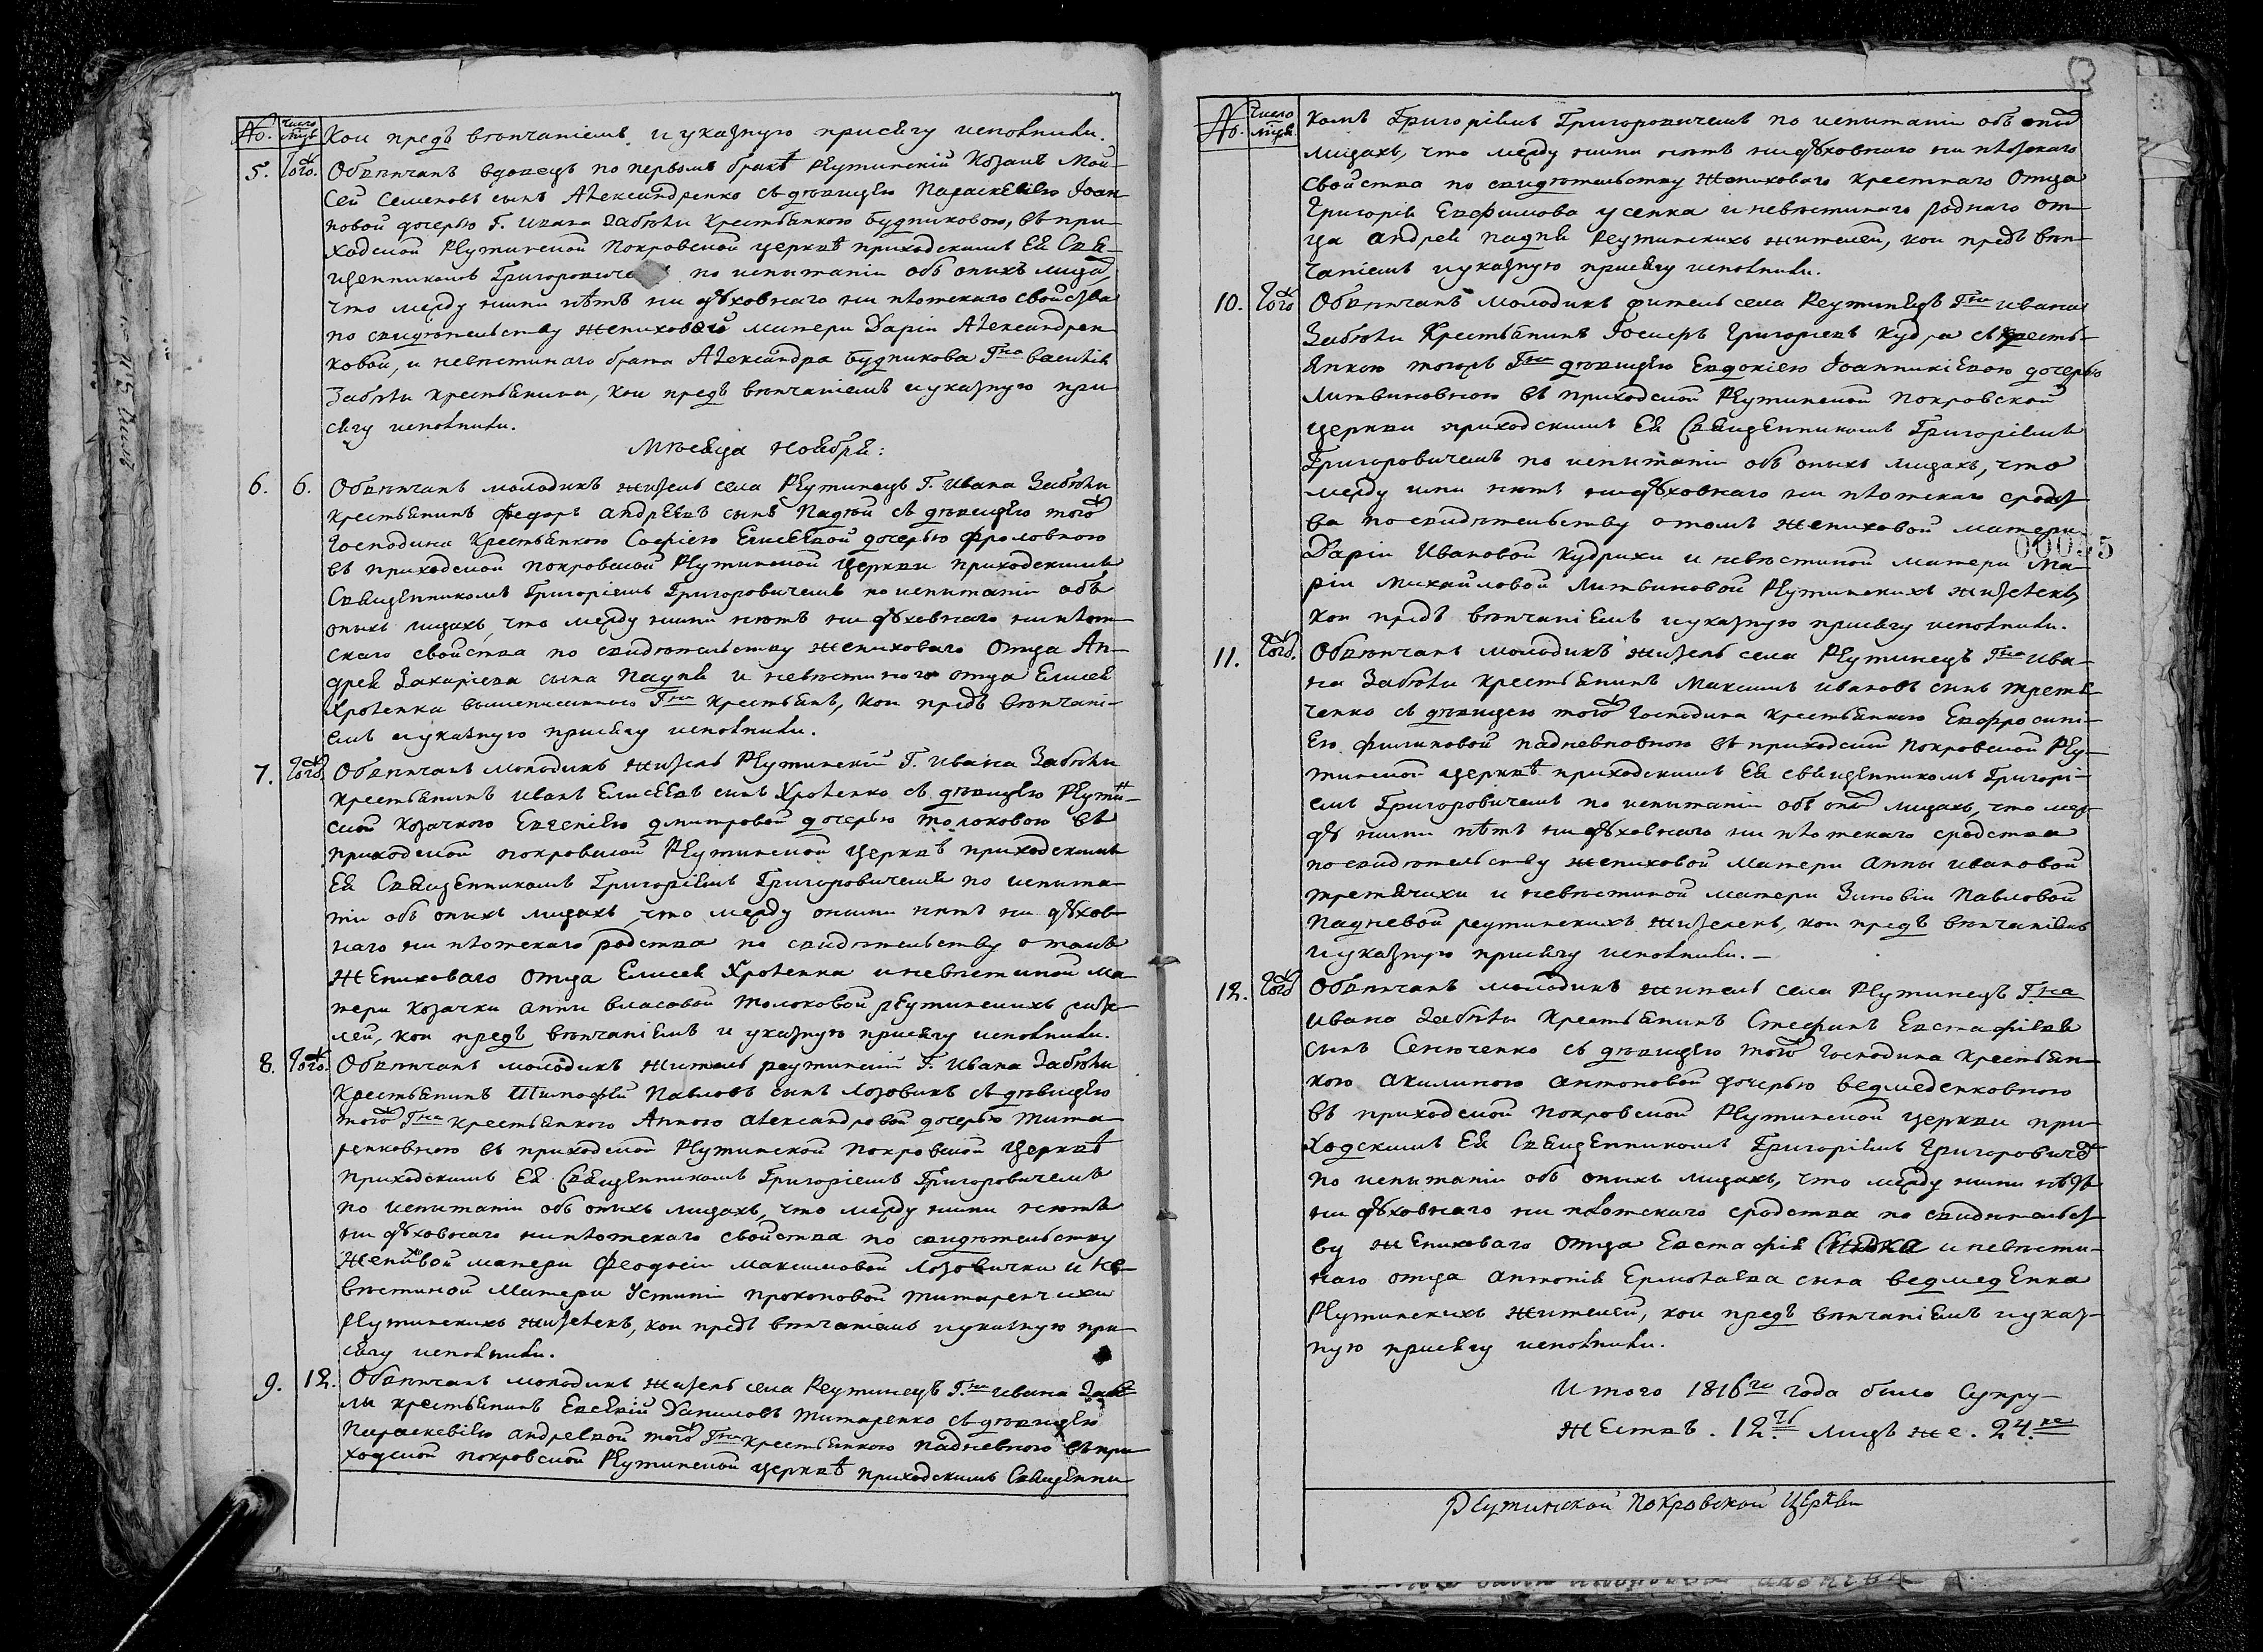 No. число мцъ Кои предъ вѣнчаніемъ и указную присягу исполнили.
5. Тогож. Обвѣнчанъ вдовецъ по первомъ бракѣ Реутинскій козакъ Мой-
сей Семеновъ сынъ Александренко съ дѣвицею Параскевіею Іоан-
новой дочерью Г. Ивана Забѣли крестьянкою Будниковою, въ при-
ходской Реутинской Покровской церквѣ приходскимъ Ея Свя-
щенникомъ Григоровиче по испытаніи объ оныхъ лицах
что между ними нѣтъ ни духовнаго ни плотскаго свойства
по свидѣтельству жениховой матери Даріи Александрен-
ковой, и невѣстинаго брата Александра Будникова Гна Василія
Забѣли крестьянина, кои предъ вѣнчаніемъ и указную при
сягу исполнили.
Мѣсяца Ноября:
6. 6. Обвѣнчанъ молодикъ житель села Реутинецъ Г. Ивана Забѣли
крестьянинъ Федоръ Андреевъ сынъ Падѣй съ дѣвицею тогож
Господина крестьянкою Софіею Елисеевой дочерью Фроловною
въ приходской Покровской Реутинской церкви приходскимъ
Священникомъ Григоріемъ Григоровичемъ по испытаніи объ
оныхъ лицахъ, что между ними нѣтъ ни духовнаго ни плот-
скаго свойства по свидѣтельству жениховаго отца Ан-
дрея Захаріева сына Падня и невѣстинаго отца Елисея
Хроленка вышеписаннаго Гна крестьянъ, кои предъ вѣнчані-
емъ и указную присягу исполнили.
7. Тогож Обвѣнчанъ молодикъ житель Реутинскій Г. Ивана Забѣли
крестьянинъ Иванъ Елисеевъ сынъ Хроленко съ дѣвицею Реутин-
ской козачкою Евгеніею Дмитровой дочерью Толоковою въ
приходской Покровской Реутинской церквѣ приходскимъ
Ея Священникомъ Григоріемъ Григоровичемъ по испыта-
ніи объ оныхъ лицахъ, что между оными нѣтъ ни духов-
наго ни плотскаго родства по свидѣтельству о томъ
жениховаго отца Елисея Хроленка и невѣстиной ма-
тери козачки Анны Власовой Толоковой Реутинскихъ жите-
лей, кои предъ вѣнчаніемъ и указную присягу исполнили.
8. Тогож. Обвѣнчанъ молодикъ житель реутинскій Г. Ивана Забѣли
крестьянинъ Тимофей Павловъ сынъ Лозовикъ съ дѣвицею
тогож Гна крестьянкою Анною Александровой дочерью Тита-
ренковною въ приходской Реутинской Покровской церквѣ
приходскимъ Ея Священникомъ Григоріемъ Григоровичемъ
по испытаніи объ оныхъ лицахъ, что между ними нѣтъ
ни духовнаго ни плотскаго свойства по свидѣтельству
жениховой матери Феодосіи Максимовой Лозовички и не-
вѣстиной матери Устиніи Прокоповой Титаренчихи
Реутинскихъ жителей, кои предъ вѣнчаніемъ и указную при-
сягу исполнили.
9. 12. Обвѣнчанъ молодикъ житель села Реутинецъ Гна Ивана Забѣ-
ли крестьянинъ Евсевій Даниловъ Титаренко съ дѣвицею
Параскевіею Андреевой тогож Гна крестьянкою Падневною въ при
ходской Покровской Реутинской церквѣ приходскимъ Священни
No. Число мцъ
комъ Григоріемъ Григоровичемъ по испытаніи объ оных
лицахъ, что между ними нѣтъ ни духовнаго ни плотскаго
свойства по свидѣтельству жениховаго крестнаго отца
Григорія Евфимова Усенка и невѣстинаго роднаго от-
ца Андрея Падня Реутинскихъ жителей, кои предъ вѣн-
чаніемъ и указную присягу исполнили.
10. Тогож Обвѣнчанъ молодикъ житель села Реутинецъ Гна Ивана
Забѣли крестьянинъ Іосифъ Григоріевъ Кудра съ кресть-
янкою тогожъ Гна дѣвицею Евдокіею Іоанникіевою дочерью
Литвиновною въ приходской Реутинской Покровской
церкви приходскимъ Ея Священникомъ Григоріемъ
Григоровичемъ по испытаніи объ оныхъ лицахъ, что
между ими нѣтъ ни духовнаго ни плотскаго сродст-
ва по свидѣтельству о томъ жениховой матери
Даріи Ивановой Кудрихи и невѣстиной матери Ма-
ріи Михайловой Литвиновой Реутинскихъ жителей,
кои предъ вѣнчаніемъ и указную присягу исполнили.
00035
11. Тогож. Обвѣнчанъ молодикъ житель села Реутинецъ Гна Ива-
на Забѣли крестьянинъ Максимъ Ивановъ сынъ Третя-
ченко съ дѣвицею тогож Господина крестьянкою Евфросині-
ею Филиповой Падневновною въ приходской Покровской Реу-
тинской церквѣ приходскимъ Ея священникомъ Григорі-
емъ Григоровичемъ по испытаніи объ оных лицахъ, что меж-
ду ними нѣтъ ни духовнаго ни плотскаго сродства
по свидѣтельству жениховой матери Анны Ивановой
Третячихи и невѣстиной матери Зиновіи Павловой
Падневой реутинскихъ жителей, кои предъ вѣнчаніемъ
и указную присягу исполнили. —
12. Тогож Обвѣнчанъ молодикъ житель села Реутинецъ Гна
Ивана Забѣли крестьянинъ Стефанъ Евстафіевъ
сынъ Сенюченко съ дѣвицею тогож Господина крестьян-
кою Акилиною Антоновой дочерью Ведмеденковною
въ приходской Покровской Реутинской церкви при
ходскимъ Ея Священникомъ Григоріемъ Григоровичем
по испытаніи объ оныхъ лицахъ, что между ними нѣтъ
ни духовнаго ни плотскаго сродства по свидѣтельст-
ву жениховаго отца Евстафія и невѣсти-
наго отца Антонія Ермолаева сына Ведмеденка
Реутинскихъ жителей, кои предъ вѣнчаніемъ и указ-
ную присягу исполнили.
Итого 1816го года было супру-
жествъ. 12ть лицъ же. 24ре
Реутинской Покровской Церкви